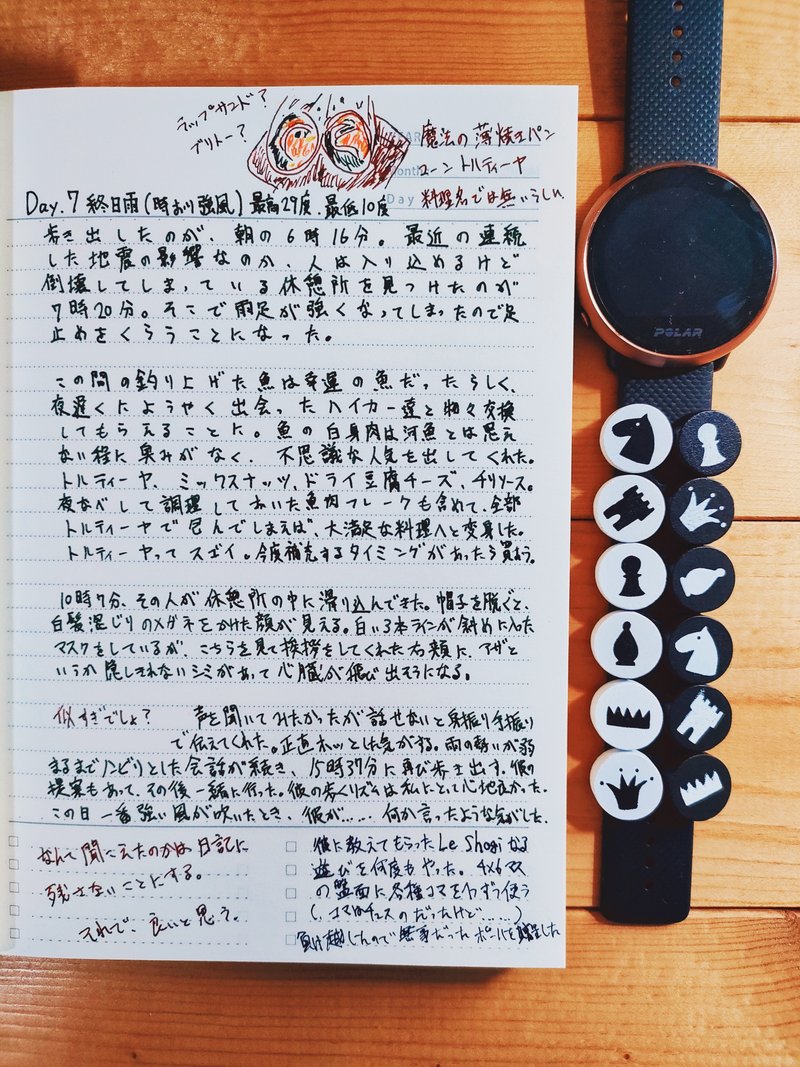 ラップサンド?
ブリトー?
魔法の薄焼きパン
コーントルティーヤ
料理名では無いらしい
Day.7 終日雨(時おり強風)最高29度、最低10度
歩き出したのが、朝の6時16分。最近の連続
した地震の影響なのか、人は入り込めるけど
倒壊してしまっている休憩所を見つけたのが
7時20分。そこで雨足が強くなってしまったので足
止めをくらうことになった。
この間の釣り上げた魚は幸運の魚だったらしく、
夜遅くにようやく出会ったハイカー達と物々交換
してもらえることに。魚の白身肉は河魚とは思え
ない程に臭みがなく、不思議な人気を出してくれた。
トルティーヤ、ミックスナッツ、ドライ豆腐チーズ、チリソース。
夜なべして調理しておいた魚肉フレークも含めて、全部
トルティーヤで包んでしまえば、大満足な料理へと変身した。
トルティーヤってスゴイ。今度補充するタイミングがあったら買おう。
10時7分、その人が休憩所の中に滑り込んできた。帽子を脱ぐと、
白髪混じりのメガネをかけた顔が見える。白い3本ラインが斜めに入った
マスクをしているが、こちらを見て挨拶をしてくれた右頬に、アザと
いうか隠しきれないシミがあって心臓が飛び出そうになる。
似すぎでしょ?
声を聞いてみたかったが話せないと身振り手振り
で伝えてくれた。正直ホッとした気がする。雨の勢いが弱
まるまでノンビリとした会話が続き、15時37分に再び歩き出す。彼の
提案もあって、その後一緒に行った。彼の歩くリズムは私にとって心地良かった。
この日一番強い風が吹いたとき、彼が……何か言ったような気がした。
なんて聞こえたのかは日記に
残さないことにする。
それで、良いと思う。
彼に教えてもらったLe Shogiなる
遊びを何度もやった。4×6マス
の盤面に各種コマを1つずつ使う
(、コマはチェスのだったけど……)
負け越したので無事だったポールを贈呈した
POLAR